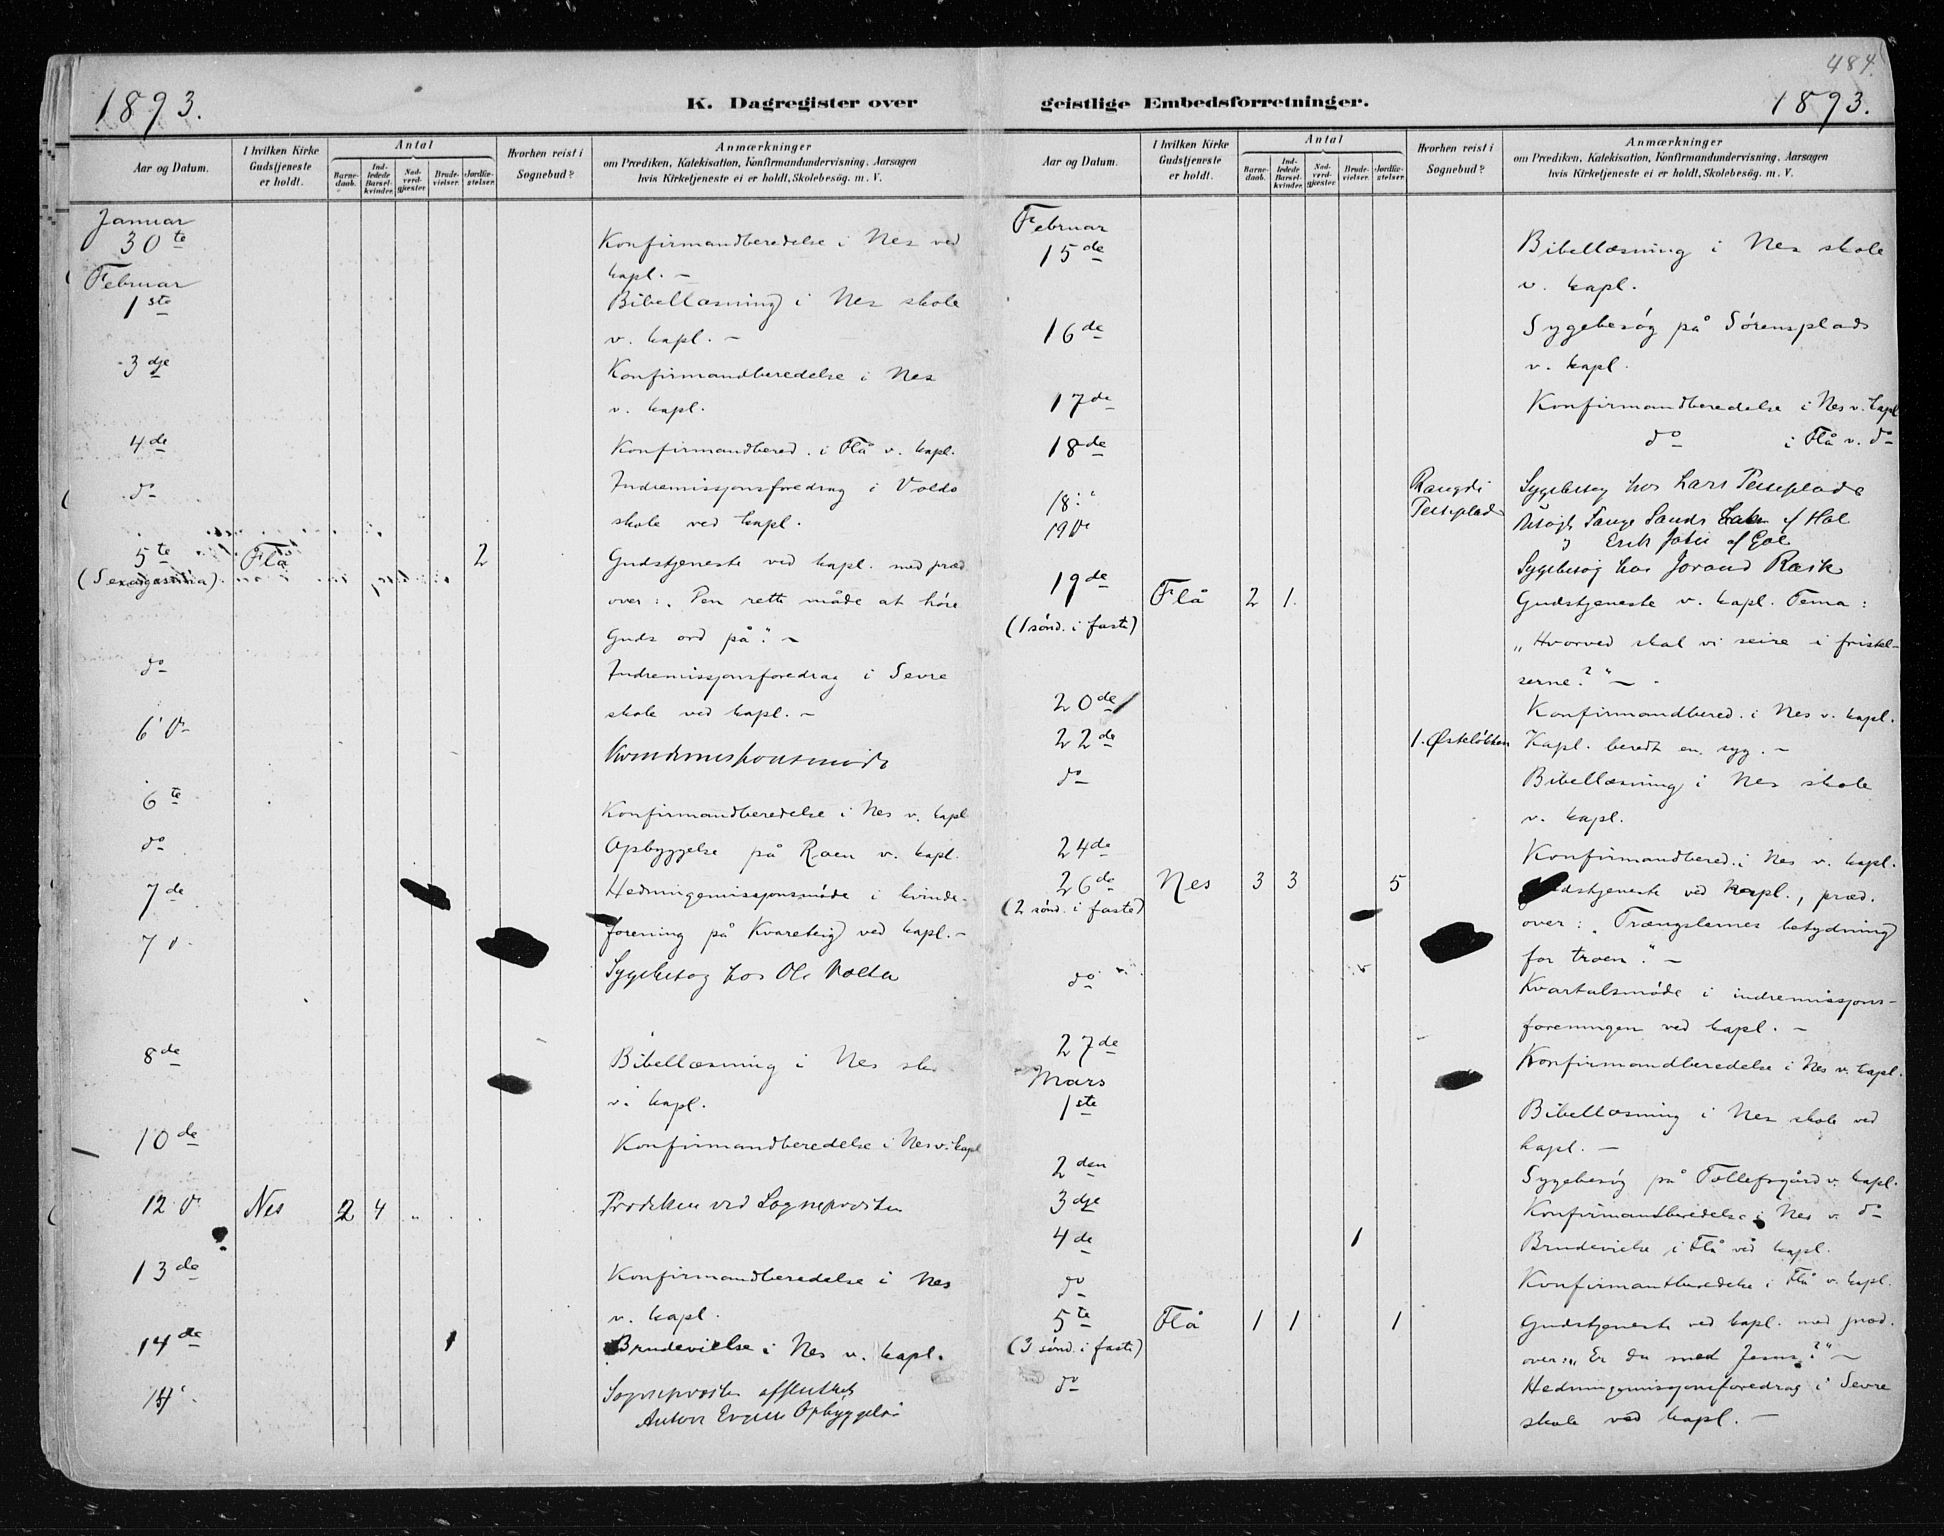 484.
1893.
K. Dagregister over
geistlige Embedsforretninger.
1893.
Aar og Datum.
I hvilken Kirke
Gudstjeneste
er holdt.
Antal
Barne-
daab.
Ind-
ledede
Barsel-
kvinder.
Nad-
verd-
gjester
Brude-
vielser.
Jordfæ-
stelser.
Hvorhen reist i
Sognebud?
Anmærkninger
om Prædiken, Katekisation, Konfirmandundervisning, Aarsagen
hvis Kirketjeneste ei er holdt, Skolebesög. m. V.
Januar
30te Konfirmandberedelse i Nes ved
kapl. –
Februar
1ste Bibellæsning i Nes skole
v. kapl. –
3dje Konfirmandberedelse i Nes
v. kapl.
4de Konfirmandbered. i Flå v. kapl.
do Indremissjonsforedrag i Volds
skole ved kapl.
5te Flå 2 Gudstjeneste ved kapl. med præd
(Sexagesima) over: "Den rette måde at høre
Guds ord på". –
do Indremissjonsforedrag i Sevre
skole ved kapl. –
6
6te Konfirmandberedelse i Nes v. kapl
do Opbyggelse på Roen v. kapl.
7de Hedningemissjonsmøde i kvinde-
forening på Kvareteig ved kapl. –
7 Sygebesøg hos Ole
8de Bibellæsning i Nes
v. kapl.
10de Konfirmandberedelse i Nes v. kapl
12 Nes 2 4 Prædiken ved Sognepræsten
13de Konfirmandberedelse i Nes
v. kapl.
14de 1 Brudevielse i Nes v. kapl.
14 Sognepræsten
Opbyggelse
Aar og Datum.
I hvilken Kirke
Gudstjeneste
er holdt.
Antal
Barne-
daab.
Ind-
ledede
Barsel-
kvinder.
Nad-
verd-
gjester
Brude-
vielser.
Jordfæ-
stelser.
Hvorhen reist i
Sognebud?
Anmærkninger
om Prædiken, Katekisation, Konfirmandundervisning, Aarsagen
hvis Kirketjeneste ei er holdt, Skolebesög. m. V.
Februar
15de Bibellæsning i Nes skole
v. kapl.
16de Sygebesøg på Sørensplads
v. kapl.
17de Konfirmandberedelse i Nes v. kapl
18de do i Flå v. do
18 Sygebesøg hos Lars
19 Sands af Hol
Erik af Gol
Sygebesøg hos Jorand Rask
19de Flå 2 1. Gudstjeneste v. kapl. Tema:
(1 sønd. i faste) „Hvorved skal vi seire i fristel-
serne?" –
20de Konfirmandbered. i Nes v. kapl.
22de 1. Kapl. beredt en syg. –
do Bibellæsning i Nes skole
v. kapl.
24de Konfirmandbered. i Nes v. kapl.
26de Nes 3 3 5 Gudstjeneste ved kapl., præd.
(2 sønd. i faste) over: "Trængslernes betydning
for troen". –
do Kvartalsmøde i indremissjons-
foreningen ved kapl. –
27de Konfirmandberedelse i Nes v. kapl.
Mars
1ste Bibellæsning i Nes skole ved
kapl. –
2den Sygebesøg på Tollefsgård v. kapl.
3dje Konfirmandberedelse i Nes v. do
4de 1 Brudevielse i Flå ved kapl.
do Konfirmantberedelse i Flå v. kapl.
5te Flå 1 1 1 Gudstjeneste ved kapl. med præd.
(3 sønd. i faste) over: „Er du med Jesus?" –
do Hedningemissjonsforedrag i Sevre
skole ved kapl. –